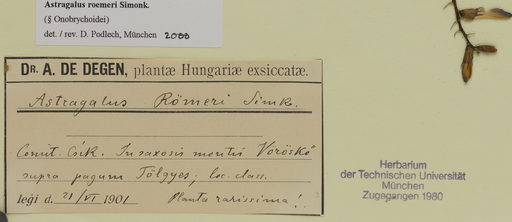 Astragalus roemeri Simonk.
(§ Onobrychoidei)
det. / rev. D. Podlech, München 2000
DR. A. DE DEGEN, plantæ Hungariæ exsiccatæ.
Astragalus Römeri Simk.
Comit. Csík. In saxosis montis Vöröskő
supra pagum Tölgyes; loc. class.
legi d. 21/VI 1901 Planta rarissima!.
Herbarium
der Technischen Universität
München
Zugegangen 1980